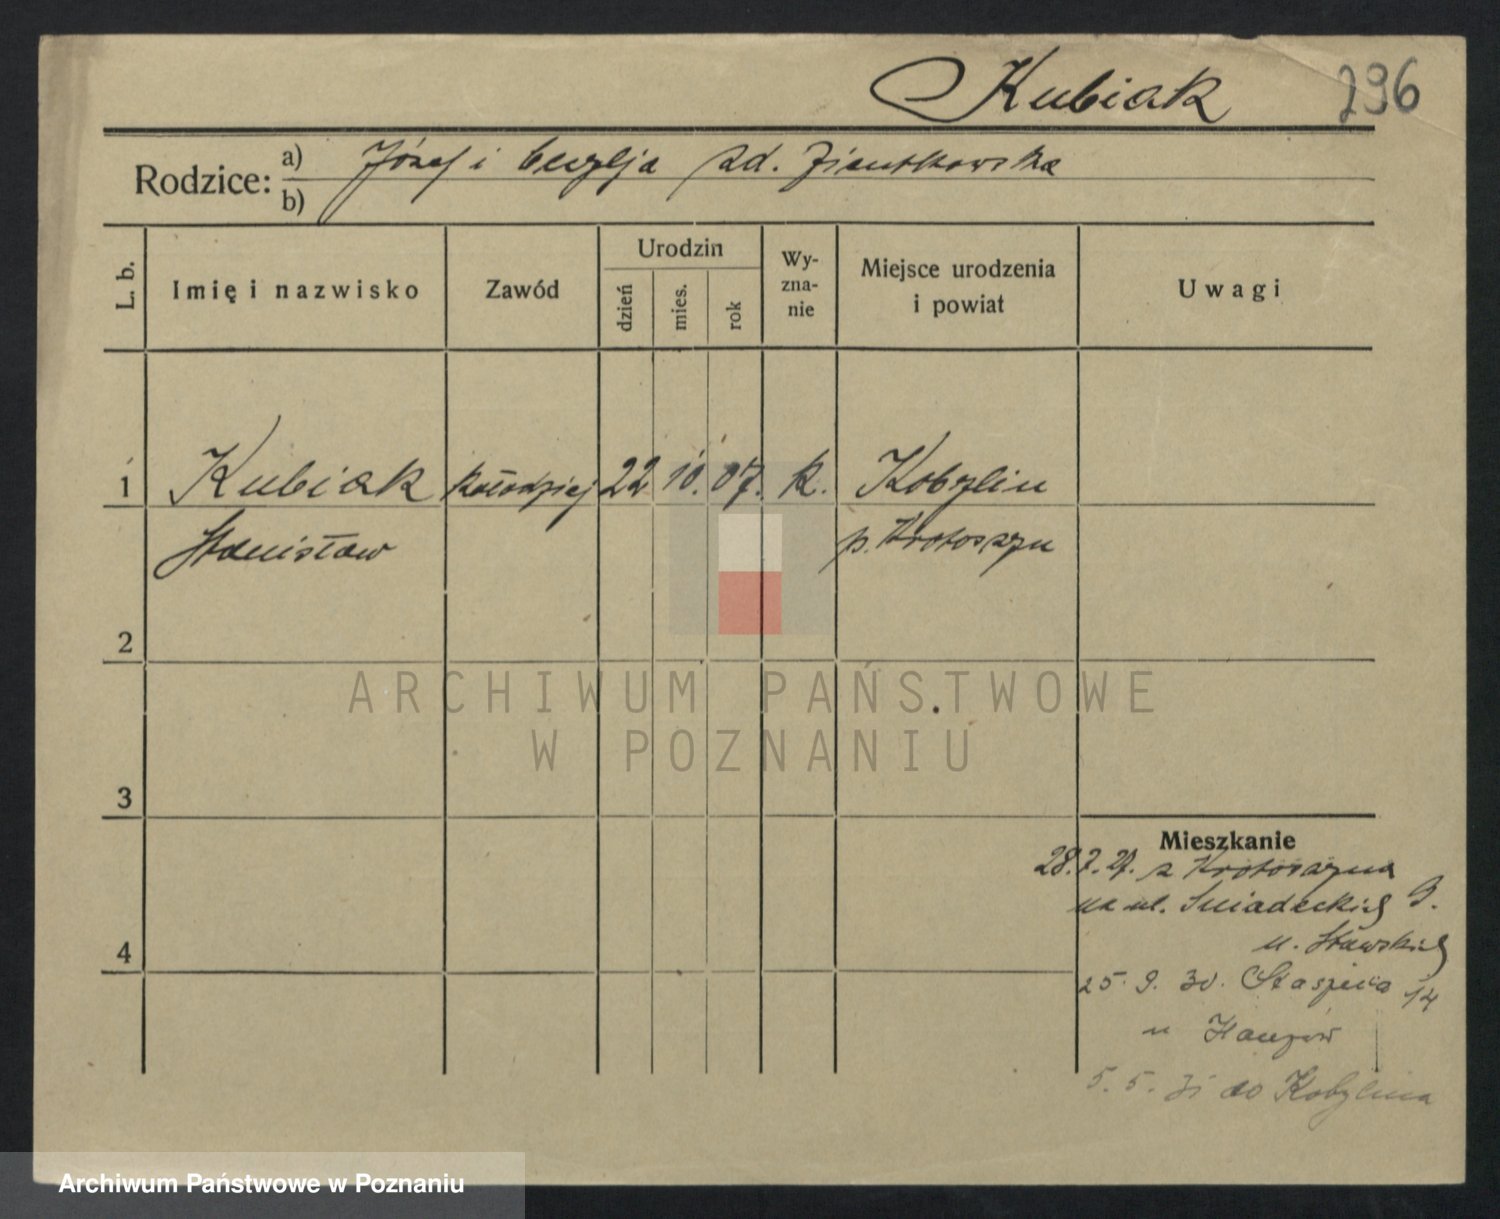 Kubiak 296
Rodzice: a) Józef i Cecylja zd. Zientkowska
b)
L. b.
Imię i nazwisko
Zawód
Urodzin
dzień
mies.
rok
Wy-
zna-
nie
Miejsce urodzenia
i powiat
Uwagi
1 Kubiak kołodziej 22 10. 07. k. Kobylin
Stanisław p. Krotoszyn
2
ARCHIWUM PAŃSTWOWE
W POZNANIU
3
Mieszkanie
28.7.27. z Krotoszyna
na ul. Śniadeckich 9.
u. Stawskich
4
25. 9. 30. Staszica 14
u
5. 5. 31 do Kobylina
Archiwum Państwowe w Poznaniu